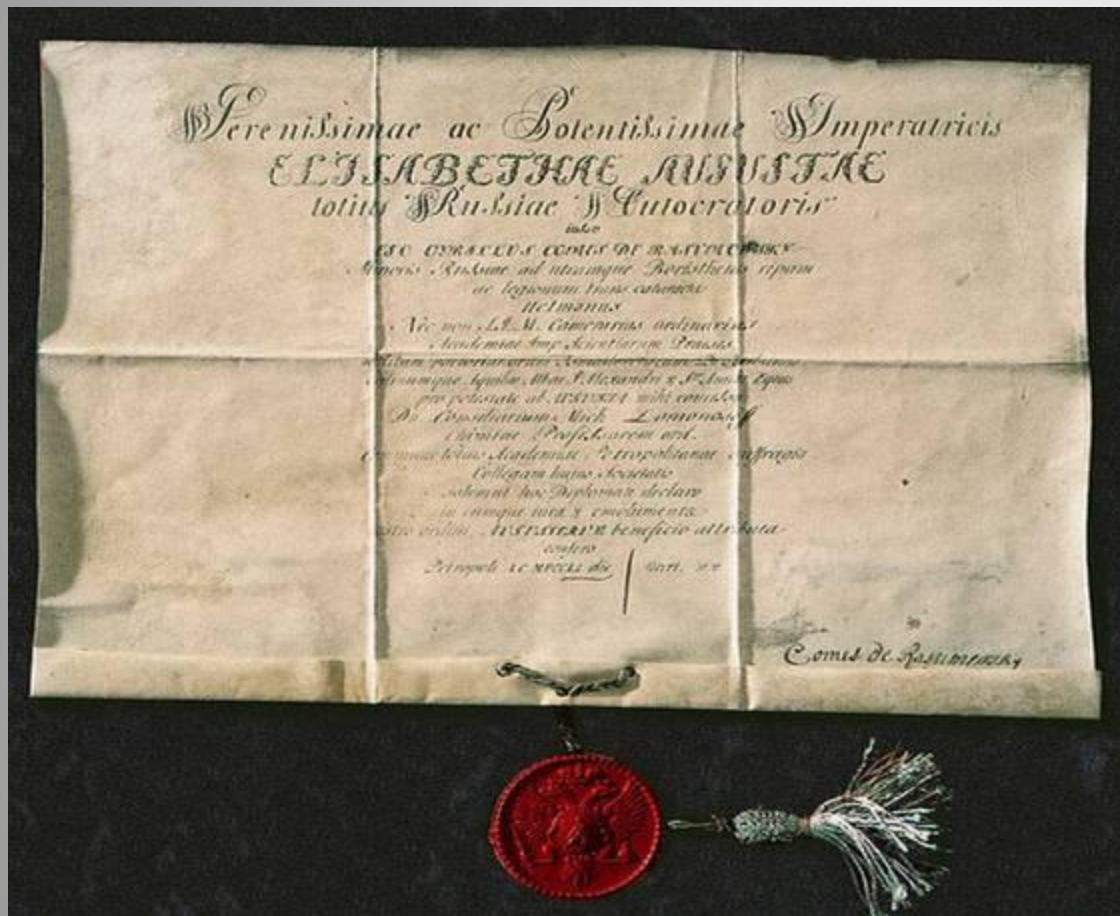 Serenissimae ac Potentissimae Imperatricis
ELISABETHAE AUGUSTAE
totius Russiae Autocratoris
iussu
EGO CYRILLUS COMES DE RASUMOWSKY
Minoris Russiae ad utramque Boristhenis ripam
ac legionum trans catarractas
Hetmanus
Nec non S. I. M. Camerarius ordinarius
Academiae Imp. Scientiarum Praeses
Aquilae Albae S. Alexandri & Stae Annae Eques
pro potestate ab AUGUSTA mihi concessa
Dn. Consiliarium Mich. Lomonosoff
Chimiae Professorem ord.
communi totius Academiae Petropolitanae suffragio
Collegam huius Societatis
solemni hoc Diplomate declaro
omnique iura & emolumenta
ordini AUGUSTAE beneficio attributa
confero
Petropoli die
Comes de Rasumowsky